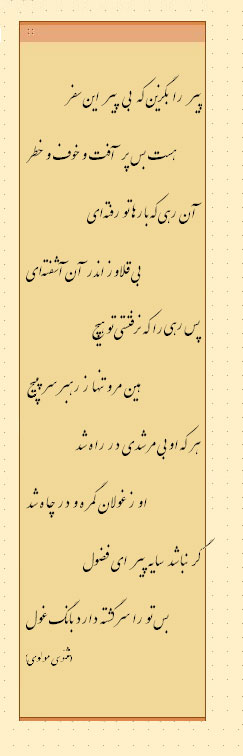 پیر را بگزین که بی پیر این سفر
هست بس پر آفت و خوف و خطر
آن رهی که بارها تو رفته‌ای
بی قلاوز اندر آن آشفته‌ای
پس رهی را که نرفتستی تو هیچ
هین مرو تنها ز رهبر سر مپیچ
هر که او بی مرشدی در راه شد
او ز غولان گمره و در چاه شد
گر نباشد سایه پیر ای فضول
بس تو را سرگشته دارد بانگ غول
(مثنوی مولوی)